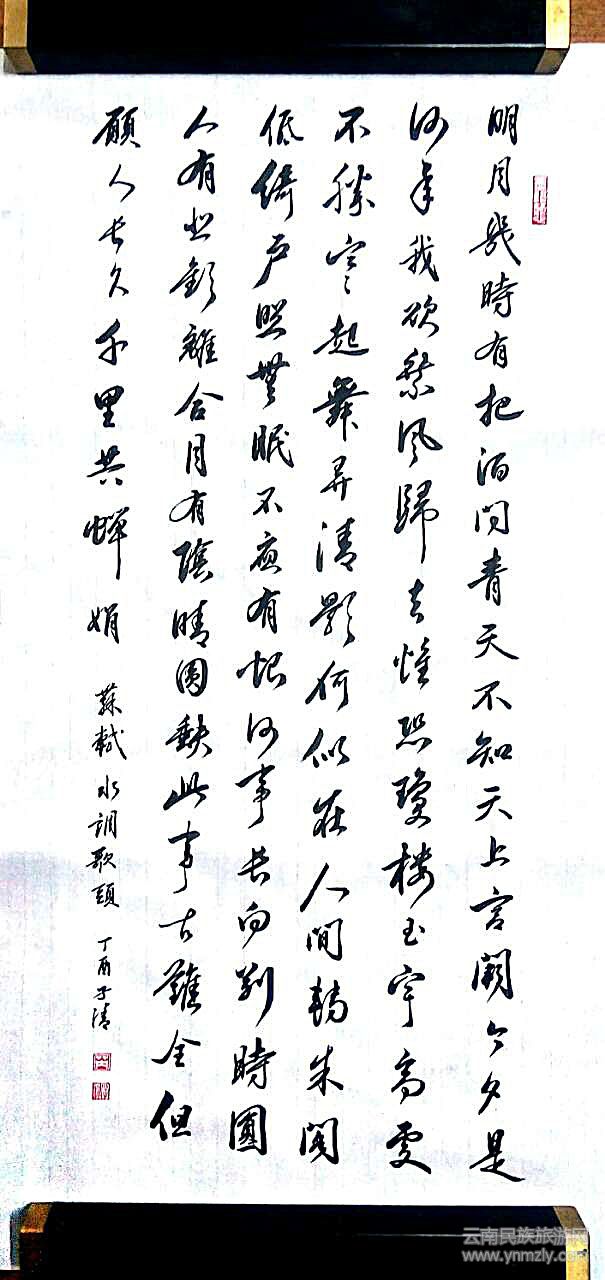 明月幾時有把酒問青天不知天上宮闕今夕是
何年我欲乘風歸去惟恐瓊樓玉宇高處
不勝寒起舞弄清影何似在人間轉朱閣
低綺戶照無眠不應有恨何事長向别時圓
人有悲歡離合月有陰晴圆缺此事古難全但
願人長久千里共嬋娟 蘇軾水調歌頭 丁酉子清
云南民族旅游网
www.ynmzly.com